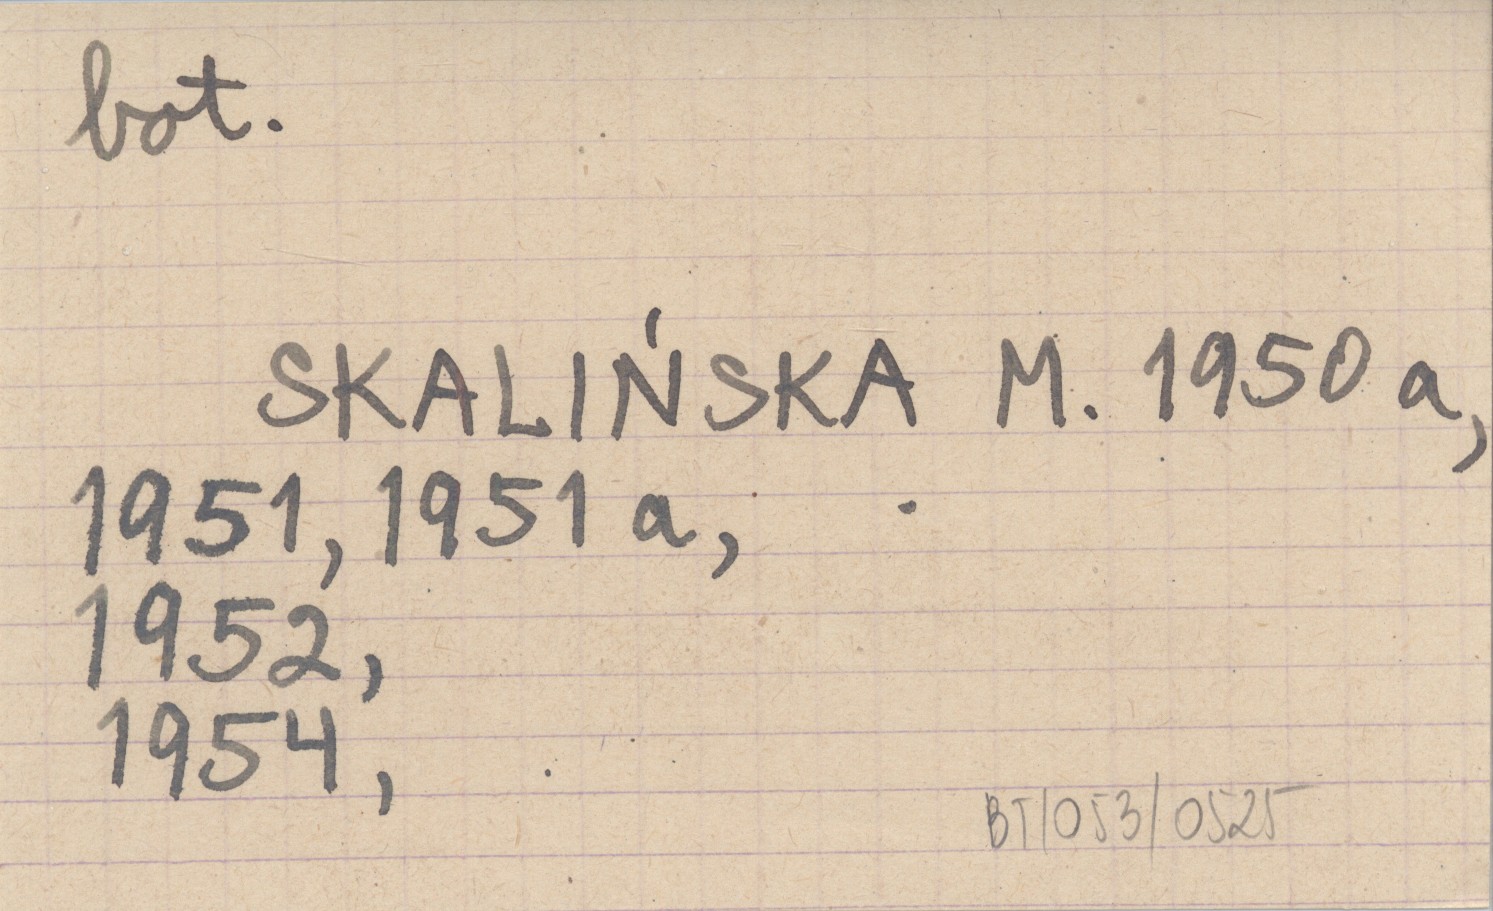 bot.
SKALIŃSKA M. 1950 a,
1951, 1951 a,
1952,
1954,
BT/053/0525